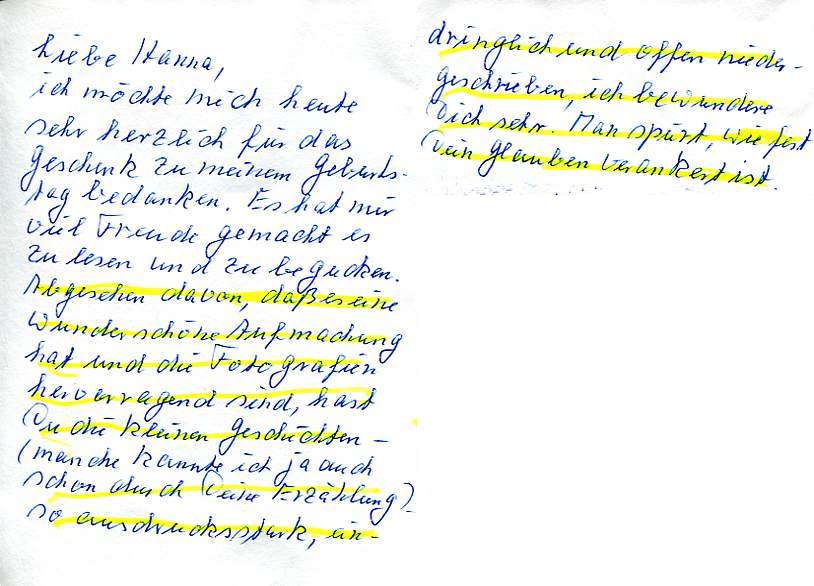 Liebe Hanna,
ich möchte mich heute
sehr herzlich für das
Geschenk zu meinem Geburts-
tag bedanken. Es hat mir
viel Freude gemacht es
zu lesen und zu begucken.
Abgesehen davon, daß es eine
wunderschöne Aufmachung
hat und die Fotografien
hervorragend sind, hast
Du die kleinen Geschichten -
(manche kannte ich ja auch
schon durch Deine Erzählung)-
so ausdrucksstark, ein-
dringlich und offen nieder-
geschrieben, ich bewundere
Dich sehr. Man spürt, wie fest
Dein Glauben verankert ist.